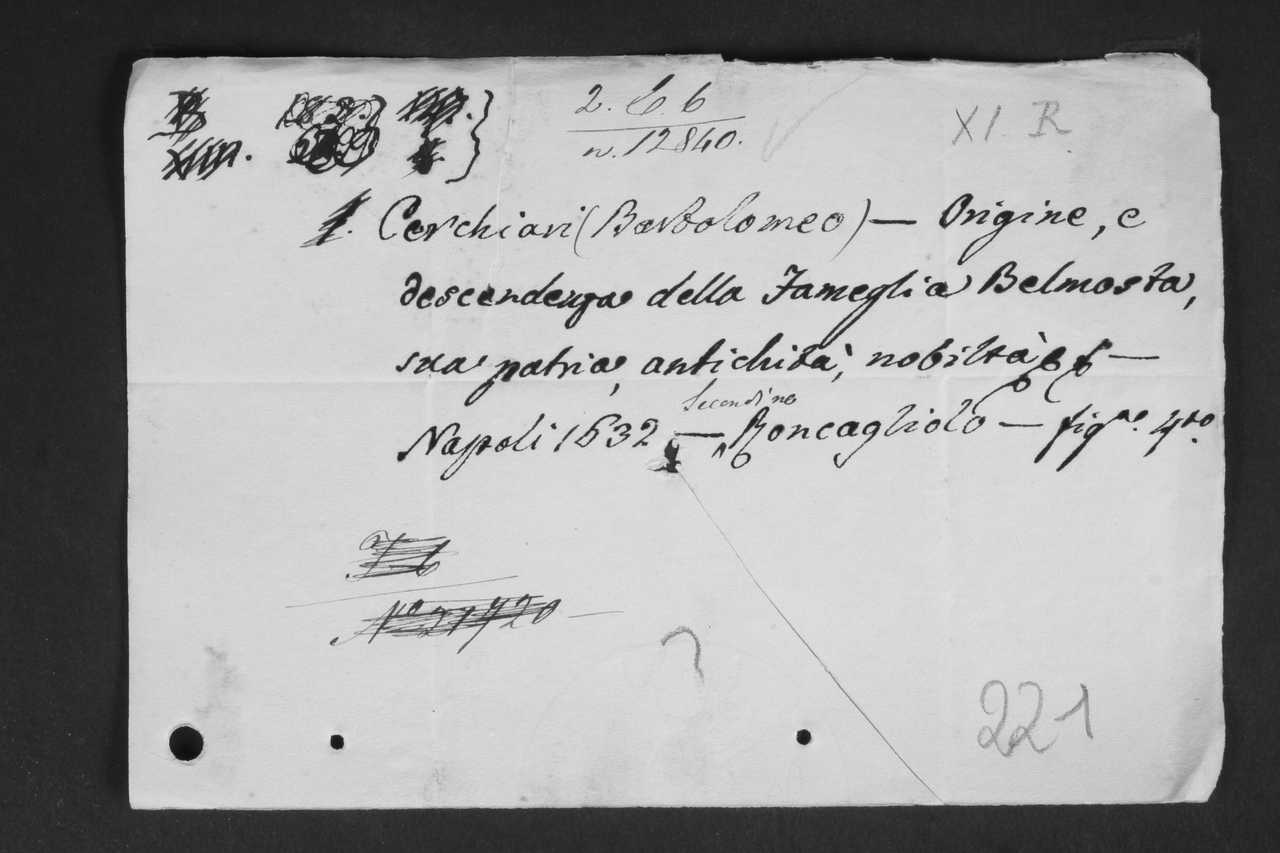 2. C. 6
n. 12840.
XI. R
1. Cerchiari (Bartolomeo) — Origine, e
descendenza della Fameglia Belmosta,
sua patria, antichità, nobiltà &c —
Secondino
Napoli 1632 — Roncagliolo — fig.ne 4to
No 21720
221